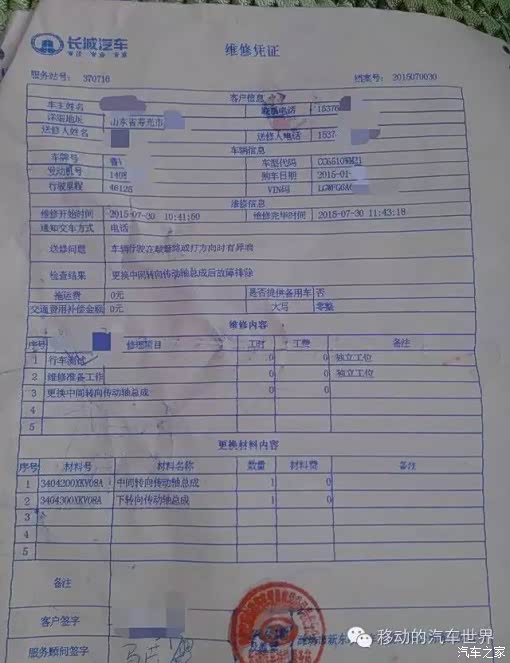 长城汽车
维修凭证
服务站号： 370716
档案号： 2015070030
客户信息
车主姓名
联系电话 15376
详细地址 山东省寿光市
送修人姓名
送修人电话 1537
车辆信息
车牌号 鲁V
车型代码
发动机号
购车日期 2015-01-
行驶里程 46125
VIN码
维修信息
维修开始时间 2015-07-30 10:41:50
维修完毕时间 2015-07-30 11:43:18
通知交车方式 电话
送修问题 车辆行驶在颠簸路或打方向时有异响
检查结果 更换中间转向传动轴总成后故障排除
拖运费 0元
是否提供备用车 否
交通费用补偿金额 0元
零整
维修内容
序号 修理项目 工时 工费 备注
1 行车测试 0 0 独立工位
2 维修准备工作 0 0 独立工位
3 更换中间转向传动轴总成 0 0
4
5
更换材料内容
序号 材料号 材料名称 数量 材料费 备注
1 3404200XKV08A 中间转向传动轴总成 1 0
2 3404300XKV08A 下转向传动轴总成 1 0
3
4
5
备注
客户签字
服务顾问签字
移动的汽车世界
汽车之家